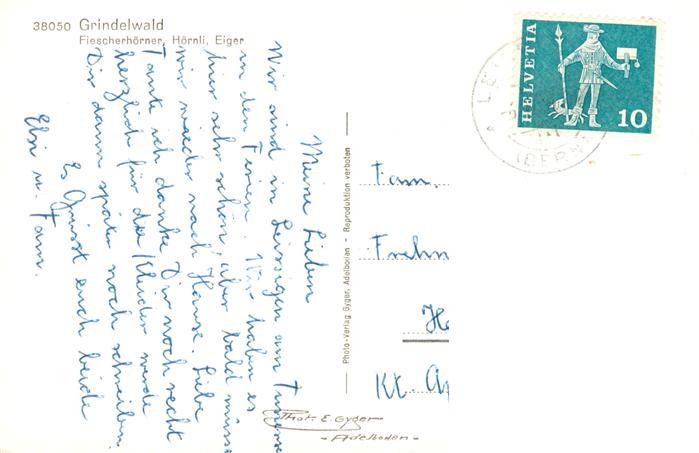 38050 Grindelwald
Fiescherhörner, Hörnli, Eiger
Meine Lieben
Wir sind in Leissigen am Tuner
in den Ferien. Wir haben es
hier sehr schön, aber bald müss
wir wieder nach Hause. Liebe
Tante ich danke Dir noch recht
herzlich für die Kleider werde
Dir dann später noch schreiben.
Es Grüsst euch beide
Elsi u. Fam.
Photo-Verlag Gyger, Adelboden - Reproduktion verboten
Phot. E. Gyger
- Adelboden -
HELVETIA
10
(BERN)
Fam.
Frehn
He
Kt. Ap